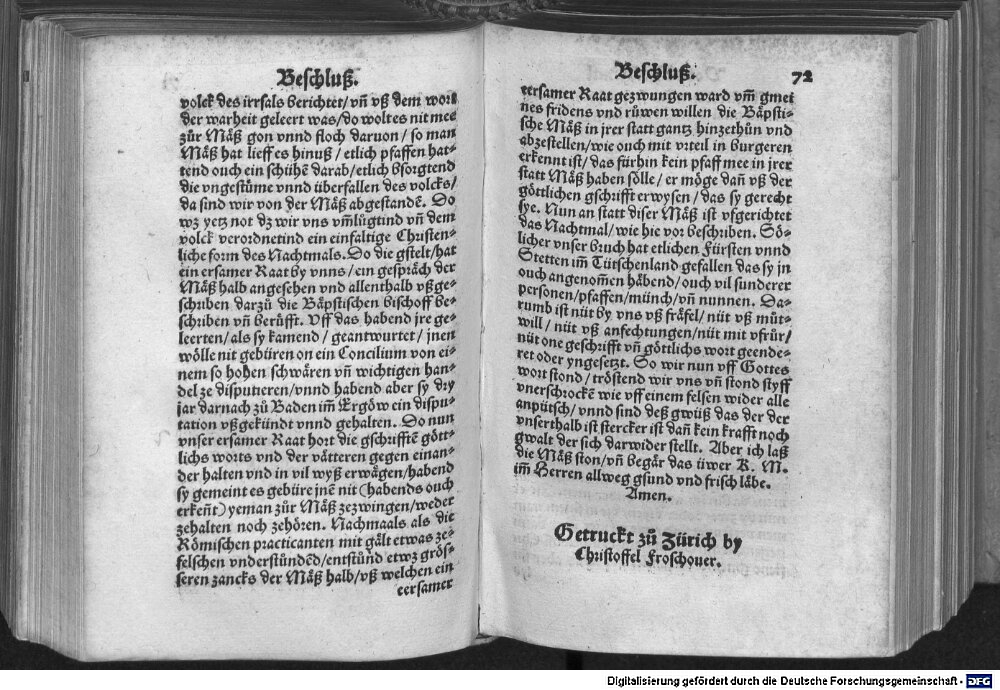 Beschluß.
volck des irrsals berichtet/vn̄ vß dem wort
der warheit geleert was/do woltes nit mee
zůr Mäß gon vnnd floch daruon/so man
Mäß hat lieff es hinuß/etlich pfaffen hat-
tend ouch ein schühē darab/etlich bsorgtend
die vngestüme vnnd überfallen des volcks/
da sind wir von der Mäß abgestandē. Do
wz yetz not dz wir vns vm̄lůgtind vn̄ dem
volck verordnetind ein einfaltige Christen-
liche form des Nachtmals. Do die gstelt/hat
ein ersamer Raat by vnns/ein gespräch der
Mäß halb angesehen vnd allenthalb vßge-
schriben darzů die Bäpstischen bischoff be-
schriben vn̄ berüfft. Vff das habend jre ge-
leerten/als sy kamend/geantwurtet/jnen
wölle nit gebüren on ein Concilium von ei-
nem so hohen schwären vn̄ wichtigen han-
del ze disputieren/vnnd habend aber sy dry
jar darnach zů Baden im̄ Ergöw ein dispu-
tation vßgekündt vnnd gehalten. Do nun
vnser ersamer Raat hort die gschrifftē gött-
lichs worts vnd der vätteren gegen einan-
der halten vnd in vil wyß erwägen/habend
sy gemeint es gebüre jnē nit (habends ouch
erkeñt) yeman zůr Mäß zezwingen/weder
zehalten noch zehören. Nachmaals als die
Römischen practicanten mit gält etwas ze-
felschen vnderstůndēd/entstůnd etwz grös-
seren zancks der Mäß halb/vß welchen ein
eersamer
Beschluß. 72
eersamer Raat gezwungen ward vm̄ gmei
nes fridens vnd růwen willen die Bäpsti-
sche Mäß in jrer statt gantz hinzethůn vnd
abzestellen/wie ouch mit vrteil in burgeren
erkennt ist/das fürhin kein pfaff mee in jrer
statt Mäß haben sölle/er möge dañ vß der
göttlichen gschrifft erwysen/das sy gerecht
sye. Nun an statt diser Mäß ist vfgerichtet
das Nachtmal/wie hie vor beschriben. Sö-
licher vnser bruch hat etlichen Fürsten vnnd
Stetten im̄ Tütschenland gefallen das sy jn
ouch angenom̄en häbend/ouch vil sunderer
personen/pfaffen/münch/vn̄ nunnen. Da-
rumb ist nüt by vns vß fräfel/nüt vß můt-
will/nüt vß anfechtungen/nüt mit vfrůr/
nüt one geschrifft vn̄ göttlichs wort geende-
ret oder yngesetzt. So wir nun vff Gottes
wort stond/tröstend wir vns vn̄ stond styff
vnerschrockē wie vff einem felsen wider alle
anpütsch/vnnd sind deß gwüß das der der
vnserthalb ist stercker ist dañ kein krafft noch
gwalt der sich darwider stellt. Aber ich laß
die Mäß ston/vn̄ begär das üwer K. M.
im̄ Herren allweg gsund vnd frisch läbe.
Amen.
Getruckt zů Zürich by
Christoffel Froschouer.
Digitalisierung gefördert durch die Deutsche Forschungsgemeinschaft - DFG